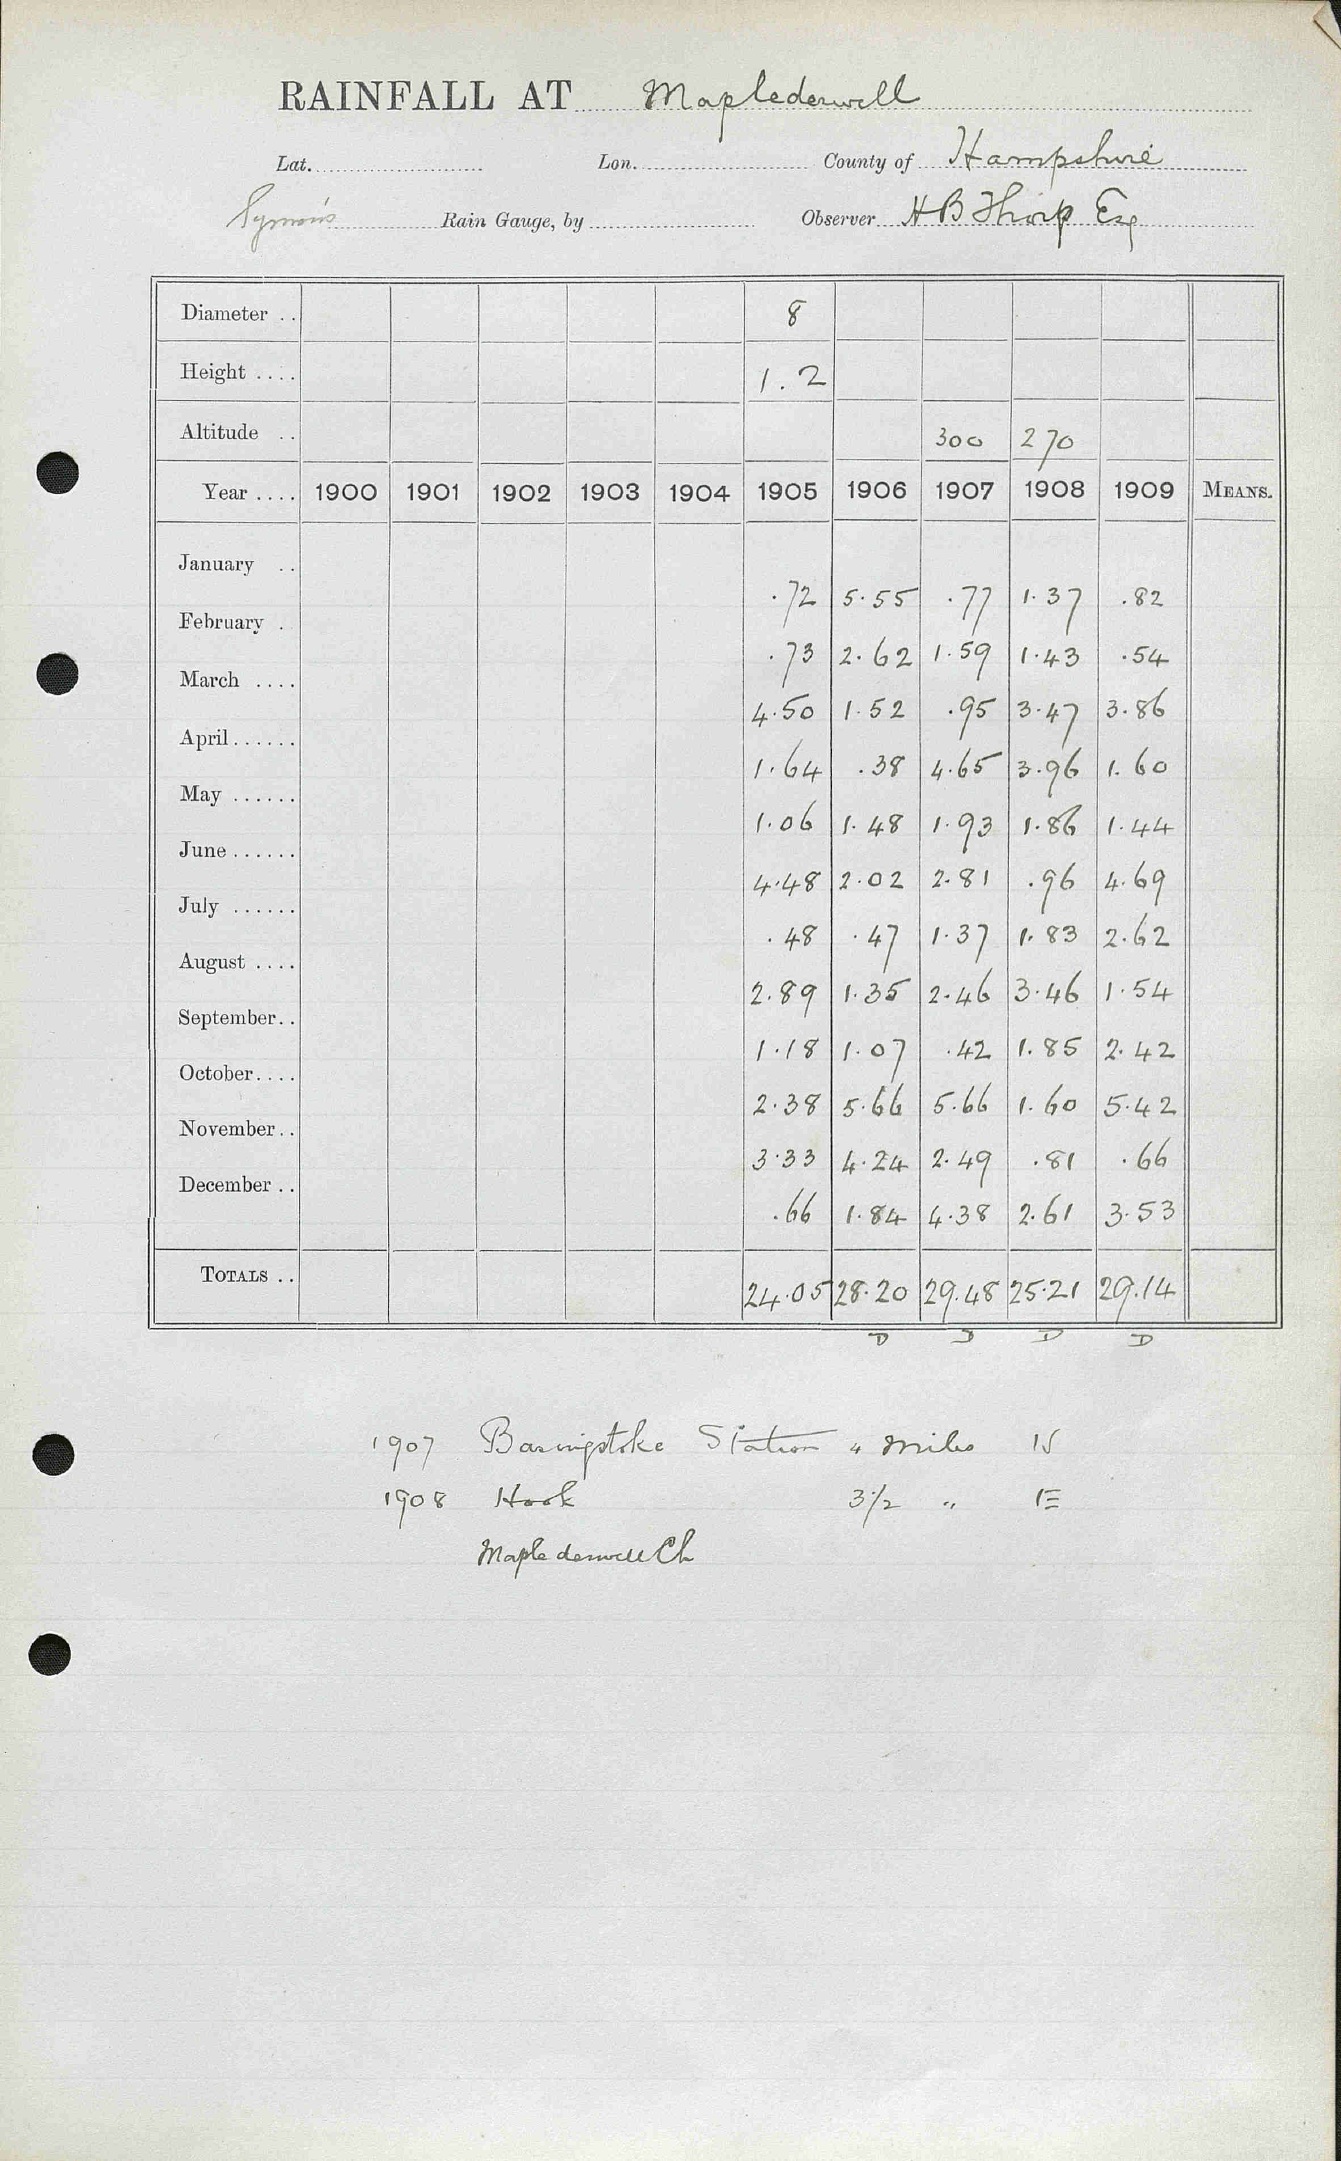 RAINFALL AT Maplederwell
Lat. Lon. County of Hampshire
Symons Rain Gauge, by Observer H B Thorp Esq
Diameter .. 8
Height .... 1.2
Altitude .. 300 270
Year .... 1900 1901 1902 1903 1904 1905 1906 1907 1908 1909 MEANS.
January .. .72 5.55 .77 1.37 .82
February . .73 2.62 1.59 1.43 .54
March .... 4.50 1.52 .95 3.47 3.86
April...... 1.64 .38 4.65 3.96 1.60
May ...... 1.06 1.48 1.93 1.86 1.44
June...... 4.48 2.02 2.81 .96 4.69
July ...... .48 .47 1.37 1.83 2.62
August .... 2.89 1.35 2.46 3.46 1.54
September.. 1.18 1.07 .42 1.85 2.42
October.... 2.38 5.66 5.66 1.60 5.42
November.. 3.33 4.24 2.49 .81 .66
December .. .66 1.84 4.38 2.61 3.53
TOTALS .. 24.05 28.20 29.48 25.21 29.14
D D D D
1907 Basingstoke Station 4 miles
1908 Hook 3½ " E
Maplederwell Ch